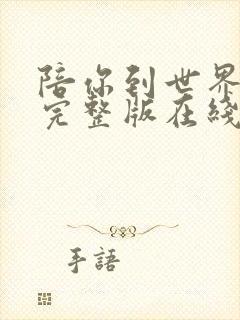 陪你到世界
完整版在线
手語